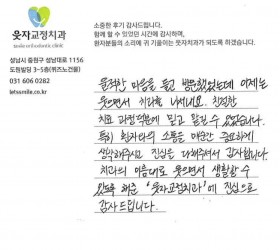 소중한 후기 감사드립니다.
함께 할 수 있었던 시간에 감사하며,
환자분들의 소리에 귀 기울이는 웃자치과가 되도록 하겠습니다.
웃자교정치과
smile orthodontic clinic
성남시 중원구 성남대로 1156
도원빌딩 3-5층(퀴즈노건물)
031 606 0282
letssmile.co.kr
불편한 마음을 들고 방문했었는데 이제는
웃으면서 치과를 나서네요. 친절한
치료 과정 덕분에 믿고 맡길 수 있었습니다.
특히 환자와의 소통을 매순간 중요하게
생각해주시고 진심을 다해주셔서 감사합니다.
치과의 이름대로 웃으면서 생활할 수
있도록 해준 '웃자교정치과'에 진심으로
감사드립니다.